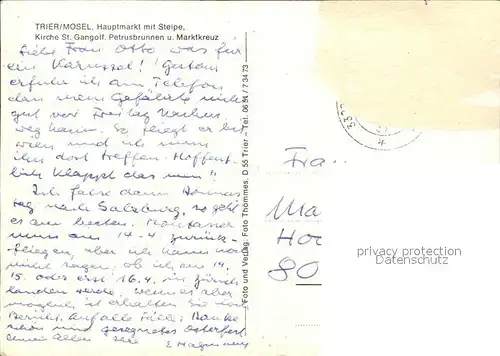 TRIER/MOSEL, Hauptmarkt mit Steipe,
Kirche St. Gangolf, Petrusbrunnen u. Marktkreuz
Liebe Frau Otto was für
ein Karussell! Gestern
erfuhr ich am Telefon
dass mein Gefährte nicht
gut vor Freitag
weg kann. So fliegt er bis
Wien und ich muss
ihn dort treffen. Hoffent-
lich klappt das nun!
Ich fahre dann Donners
tag nach Salzburg, so geht
es am besten.
nun am 14.4 zurück-
fliegen, aber ich kann noch
nicht sagen, ob ich am 14.
15. oder erst 16.4. in Zürich
landen werde, wenn es aber
möglich ist erhalten Sie noch
Bericht. Auf alle Fälle: Danke
schön und gesegnetes Osterfest
Ihnen allen Ihre E.
Foto und Verlag: Foto Thömmes, D 55 Trier – Tel. 06 51 / 7 34 73
Fra..
Ma
Hor
80
privacy protection
oldthing.de